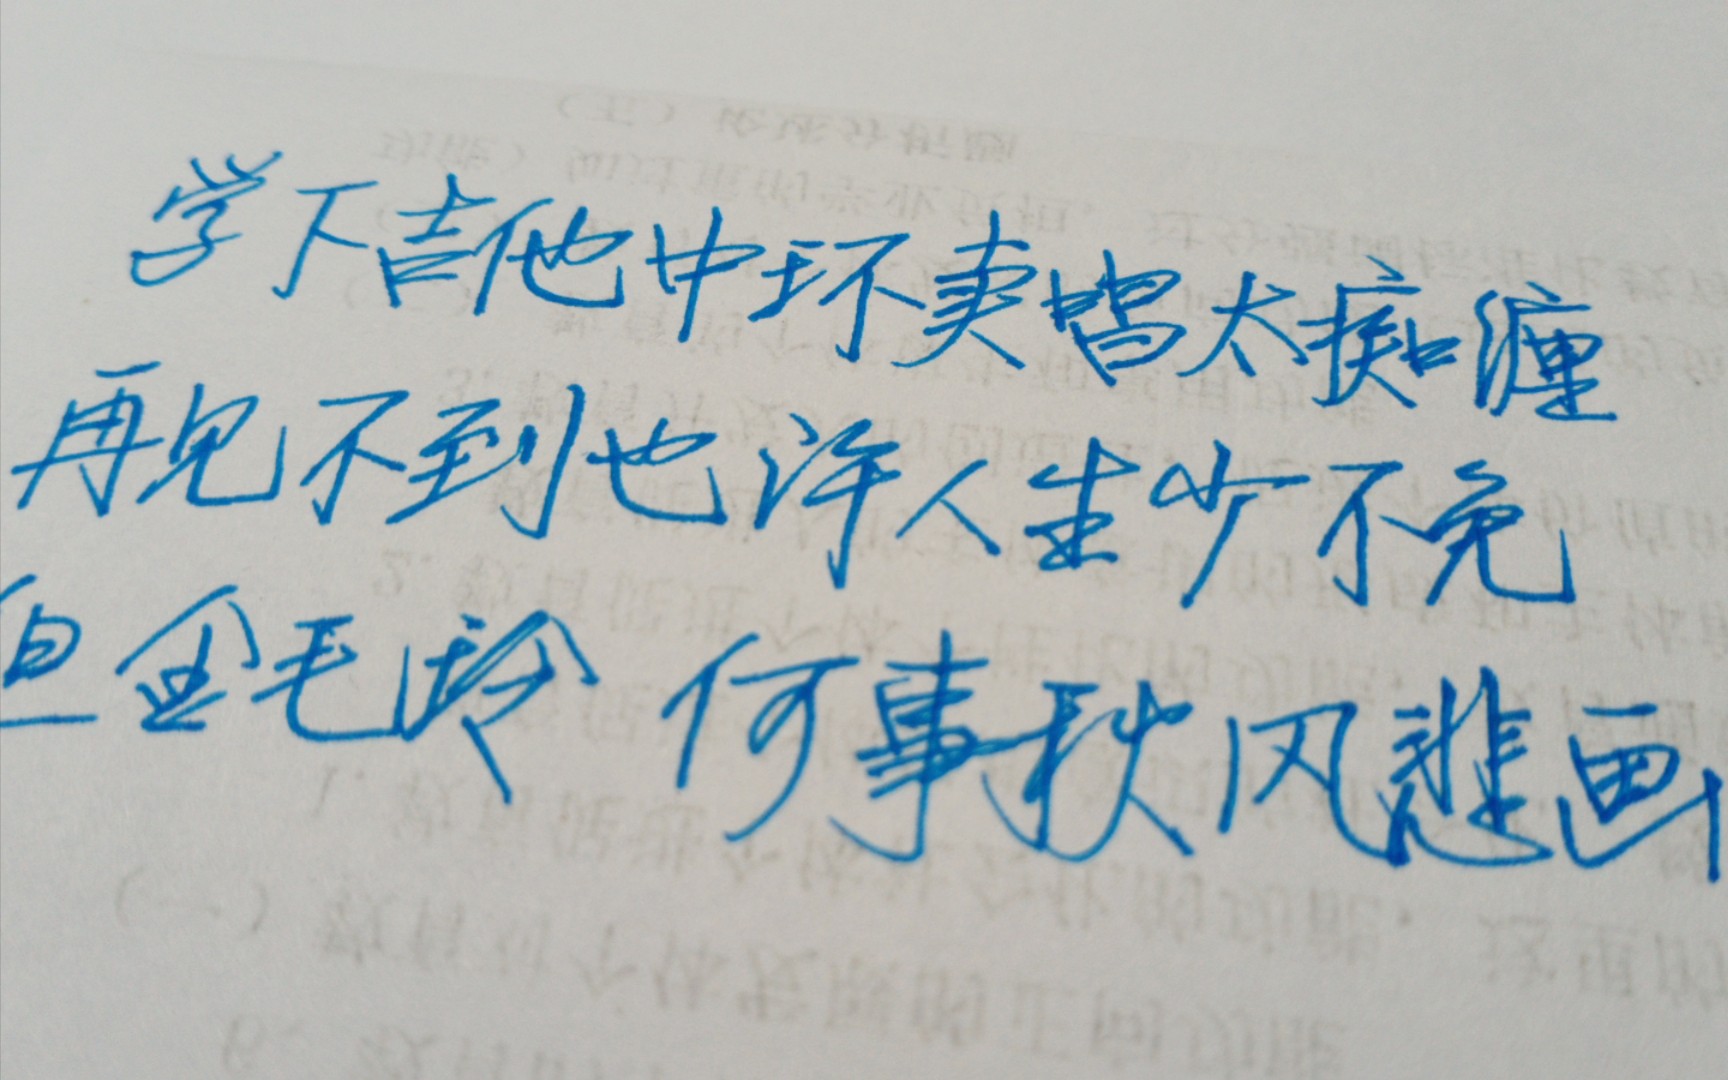 学下吉他中环卖唱太痴缠
再见不到也许人生少不免
金毛玲 何事秋风悲画